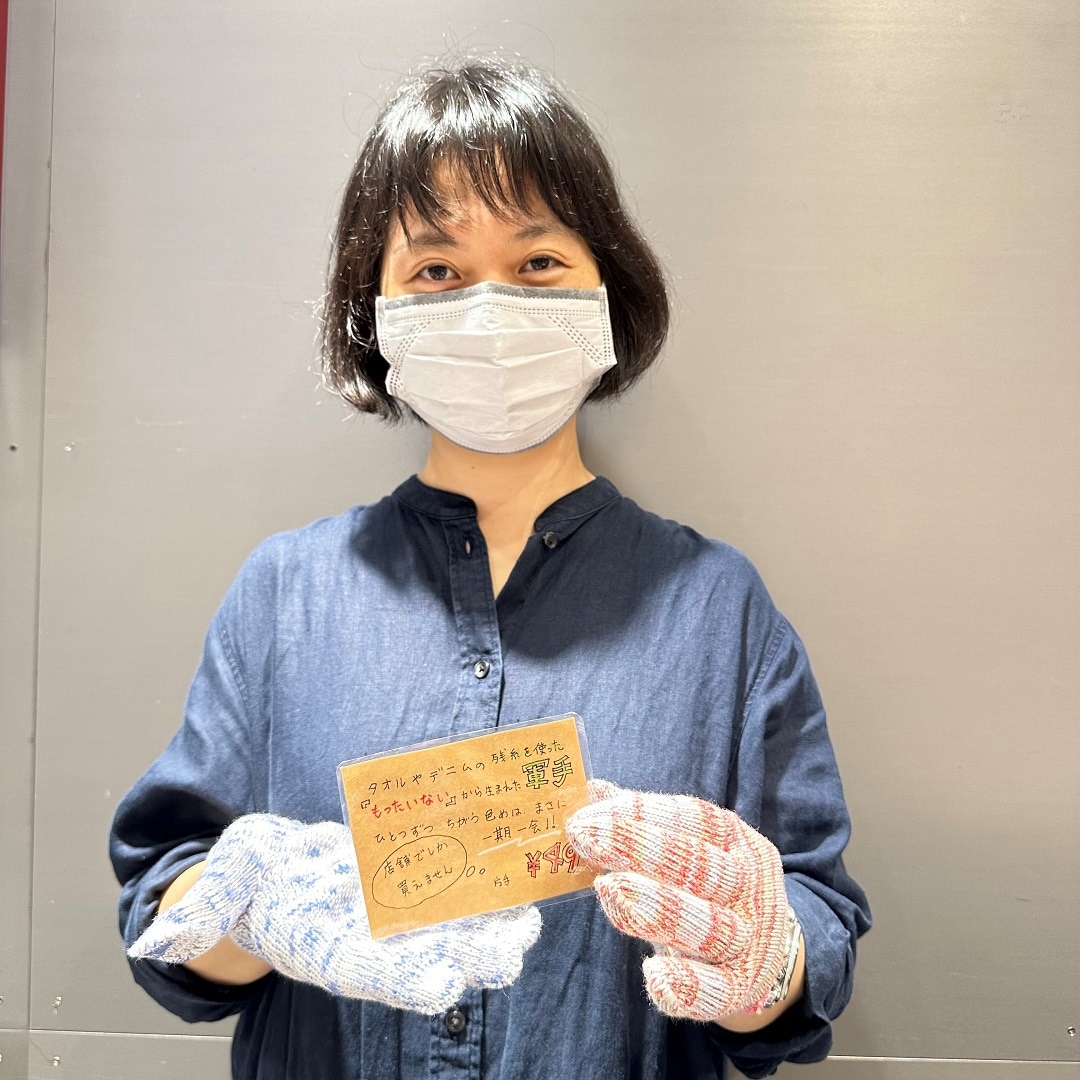 タオルやデニムの残糸を使った
『もったいない』から生まれた軍手
ひとつずつちがう色めは、まさに
一期一会!!
店舗でしか
買えません
片手